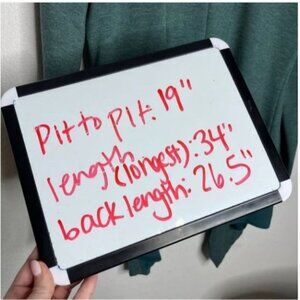 Pit to pit: 19"
length
(longest): 34"
back length: 26.5"